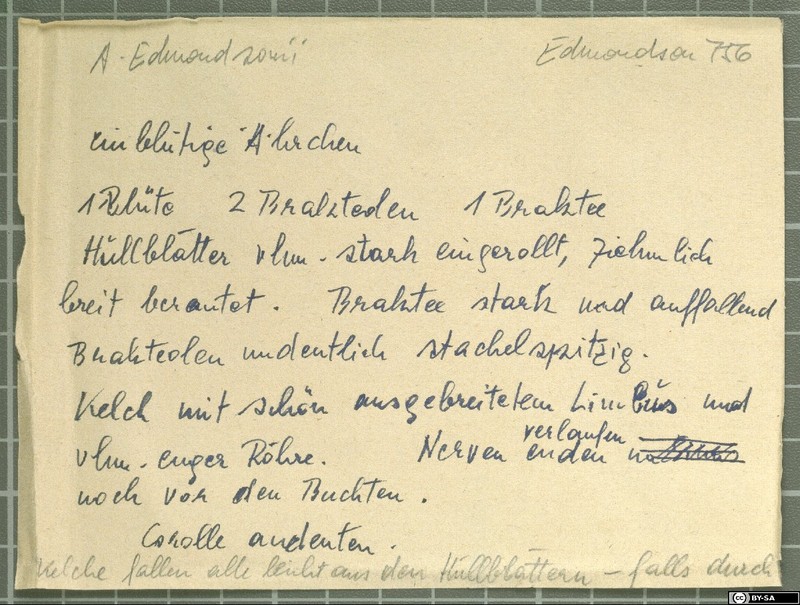 A. Edmondsonii Edmondson 756
einblütige Ährchen
1 Blüte 2 Brakteolen 1 Braktee
Hüllblätter vhm. stark eingerollt, ziehmlich
breit berautet. Braktee stark und auffallend
Brakteolen undentlich stachelspitzig.
Kelch mit schön ausgebreitetem Limbus und
vhm. enger Röhre. Nerven enden verlaufen
noch vor den Buchten.
Corolle andenten.
Kelche fallen alle leicht aus den Hüllblättern – falls durch
BY-SA